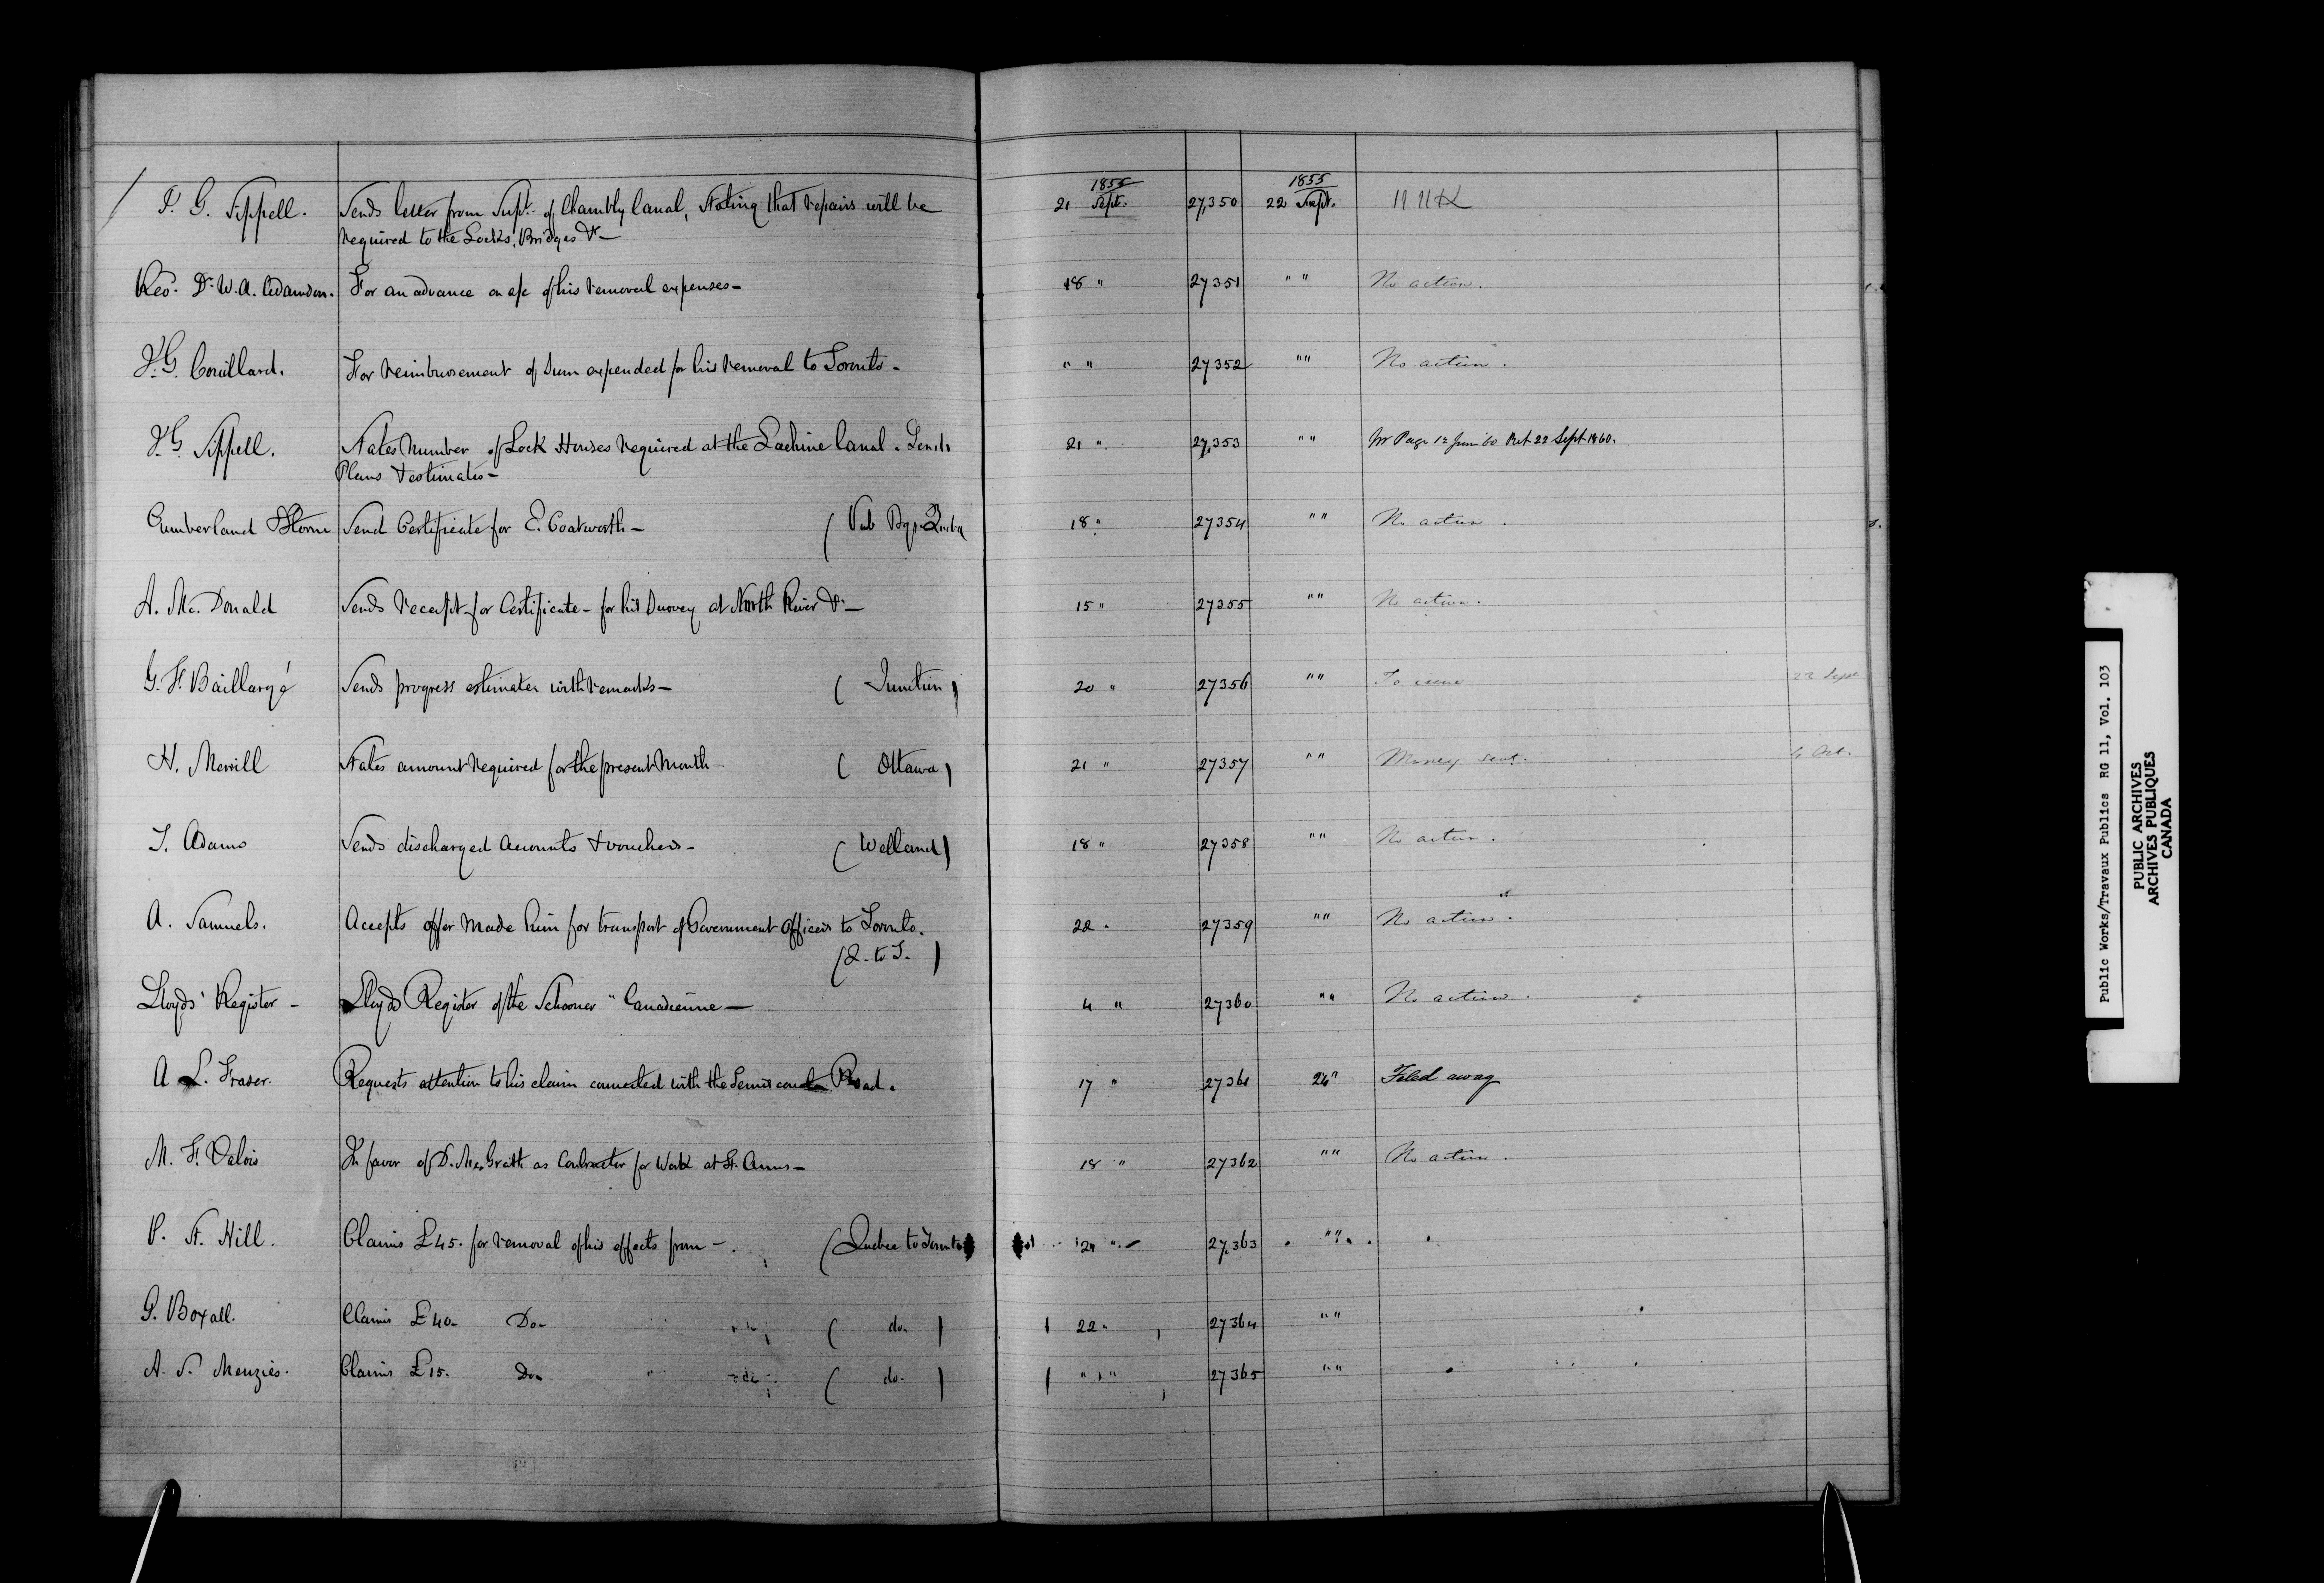 1855 1855
J. G. Sippell. Sends letter from Supt. of Chambly Canal, Stating that repairs will be 21 Sept. 27,350 22 Sept.
required to the Locks, Bridges &c—
Revd. Dr. W. A. Adamson. For an advance on a/c of his removal expenses— 18 " 27351 " " No action.
J. G. Couillard. For reimbursement of Sum expended for his removal to Toronto. " " 27352 " " No action.
J. G. Sippell. States Number of Lock Houses required at the Lachine Canal. Sends 21 " 27,353 " " Mr Page 12 Jun '60 Ret 22 Sept 1860.
Plans & estimates—
Cumberland & Storm Send Certificate for E. Coatworth— 18 " 27354 " " No action.
A. Mc. Donald Sends receipt for Certificate— for his Survey at North River &c— 15 " 27355 " " No action.
G. F. Baillargé Sends progress estimates with remarks— ( Junction ) 20 " 27356 " " To issue 22 Sept
H. Merrill States amount required for the present Month— ( Ottawa ) 21 " 27357 " " Money sent. 4 Oct.
J. Adams Sends discharged Accounts & vouchers— ( Welland ) 18 " 27358 " " No action.
A. Samuels. Accepts offer Made him for transport of Government Officers to Toronto. 22 " 27359 " " No action.
(Q. to T. )
Lloyds' Register - Lloyds Register of the Schooner "Canadienne— 4 " 27360 " " No action.
A L. Fraser. Requests attention to his claim connected with the Temiscouata Road. 17 " 27361 24 " Filed away
M. F. Valois In favor of D. McGrath as Contractor for Work at St. Anns— 18 " 27362 " " No action.
P. St. Hill. Claims £45. for removal of his effects from —. (Quebec to Toronto) 21 " 27,363 " "
G. Boxall. Claims £40— Do— ( do. ) 22 " 27364 " "
A. S. Menzies. Claims £15. Do— ( do. ) " " 27365 " "
Public Works/Travaux Publics RG 11, Vol. 103
PUBLIC ARCHIVES
ARCHIVES PUBLIQUES
CANADA